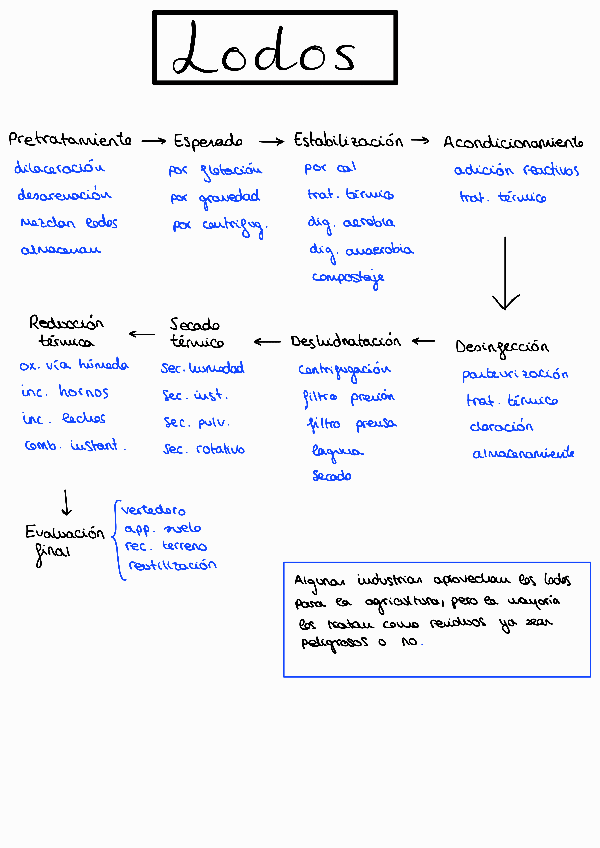 Lodos
Pretratamiento → Espesado → Estabilización → Acondicionamiente
dilaceración
desarenación
Mezclan lodos
almacenan
por flotación
por gravedad
por centrifug.
por cal
trat. térmico
dig. aerobia
dig. anaerobia
compostaje
adición reactivos
trat. térmico
Desinfección
pasteurización
trat. térmico
cloración
almacenamiente
Deshidratación
centrifugación
filtro presión
filtro prensa
laguna
secado
Secado
térmico
sec. humedad
sec. inst.
sec. pulv.
sec. rotativo
Reducción
térmica
ox. vía húmeda
inc. hornos
inc. lechos
comb. instant.
Evaluación
final
vertedero
app. suelo
rec. terreno
reutilización
Algunas industrias aprovechan los lodos
para la agricultura, pero la mayoría
los tratan como residuos ya sean
peligrosos o no.